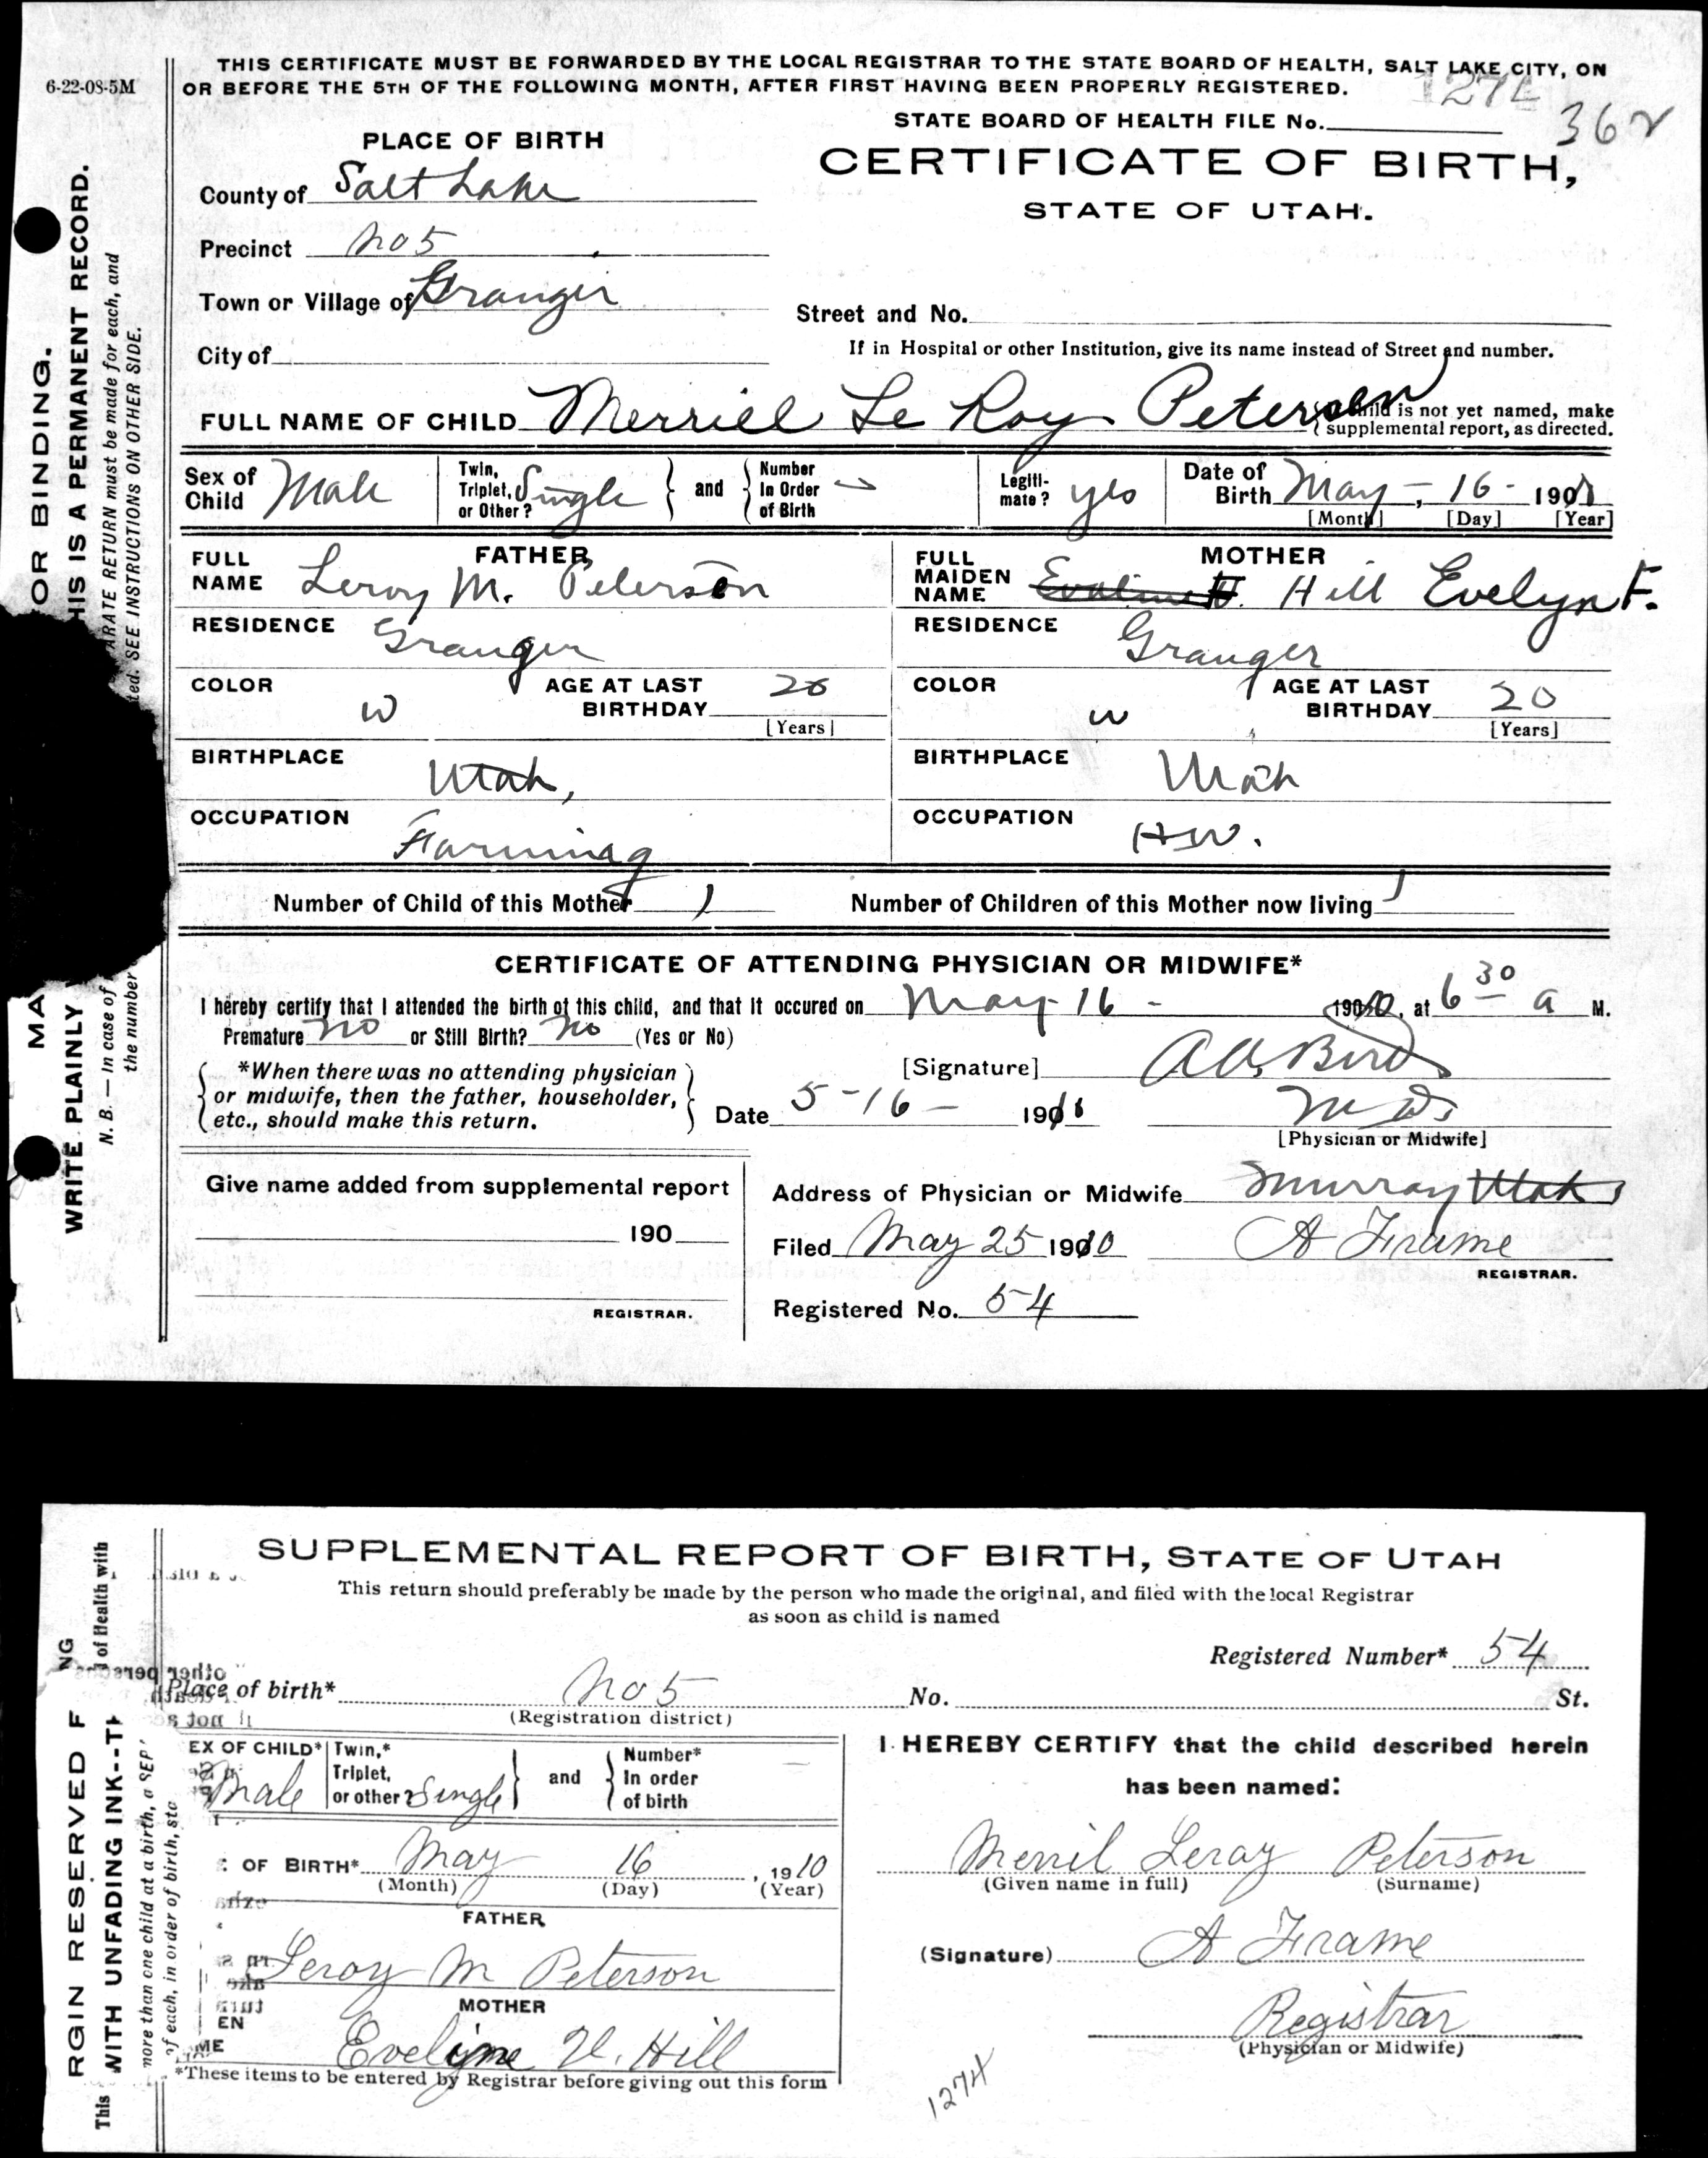 6-22-08-5M
THIS CERTIFICATE MUST BE FORWARDED BY THE LOCAL REGISTRAR TO THE STATE BOARD OF HEALTH, SALT LAKE CITY, ON
OR BEFORE THE 5TH OF THE FOLLOWING MONTH, AFTER FIRST HAVING BEEN PROPERLY REGISTERED.
STATE BOARD OF HEALTH FILE No. 362
PLACE OF BIRTH
CERTIFICATE OF BIRTH,
STATE OF UTAH.
County of Salt Lake
Precinct No 5
Town or Village of Granger
Street and No.
City of
If in Hospital or other Institution, give its name instead of Street and number.
FULL NAME OF CHILD Merrill Le Roy Peterson
child is not yet named, make
supplemental report, as directed.
Sex of Child Male
Twin, Triplet, or Other? Single and Number In Order of Birth
Legitimate? yes
Date of Birth May - 16 - 190
[Month] [Day] [Year]
FATHER
FULL NAME Leroy M. Peterson
RESIDENCE Granger
COLOR W AGE AT LAST BIRTHDAY 26
[Years]
BIRTHPLACE Utah,
OCCUPATION Farming
MOTHER
FULL MAIDEN NAME Hill Evelyn F.
RESIDENCE Granger
COLOR w AGE AT LAST BIRTHDAY 20
[Years]
BIRTHPLACE Utah
OCCUPATION HW.
Number of Child of this Mother 1 Number of Children of this Mother now living 1
CERTIFICATE OF ATTENDING PHYSICIAN OR MIDWIFE*
I hereby certify that I attended the birth of this child, and that it occured on May 16 - 1910, at 6 30 a M.
Premature no or Still Birth? no (Yes or No)
*When there was no attending physician
or midwife, then the father, householder,
etc., should make this return.
[Signature] A. A. Bird
Date 5-16- 19
M D.
[Physician or Midwife]
Give name added from supplemental report
190
REGISTRAR.
Address of Physician or Midwife Murray Utah
Filed May 25 1910 A Frame
REGISTRAR.
Registered No. 54
OR BINDING.
HIS IS A PERMANENT RECORD.
ARATE RETURN must be made for each, and
ted. SEE INSTRUCTIONS ON OTHER SIDE.
MA
WRITE PLAINLY
N. B. — In case of
the number
SUPPLEMENTAL REPORT OF BIRTH, STATE OF UTAH
This return should preferably be made by the person who made the original, and filed with the local Registrar
as soon as child is named
Registered Number* 54
Place of birth* No 5 No. St.
(Registration district)
EX OF CHILD* Male
Twin,* Triplet, or other? Single and Number* In order of birth —
OF BIRTH* May 16, 1910
(Month) (Day) (Year)
FATHER
Leroy M Peterson
MOTHER
EN
ME
Eveline H. Hill
*These items to be entered by Registrar before giving out this form
I HEREBY CERTIFY that the child described herein
has been named:
Merril Leroy Peterson
(Given name in full) (Surname)
(Signature) A Frame
Registrar
(Physician or Midwife)
1274
NG
of Health with
RGIN RESERVED F
This
WITH UNFADING INK--TH
more than one child at a birth, a SEP
of each, in order of birth, sta